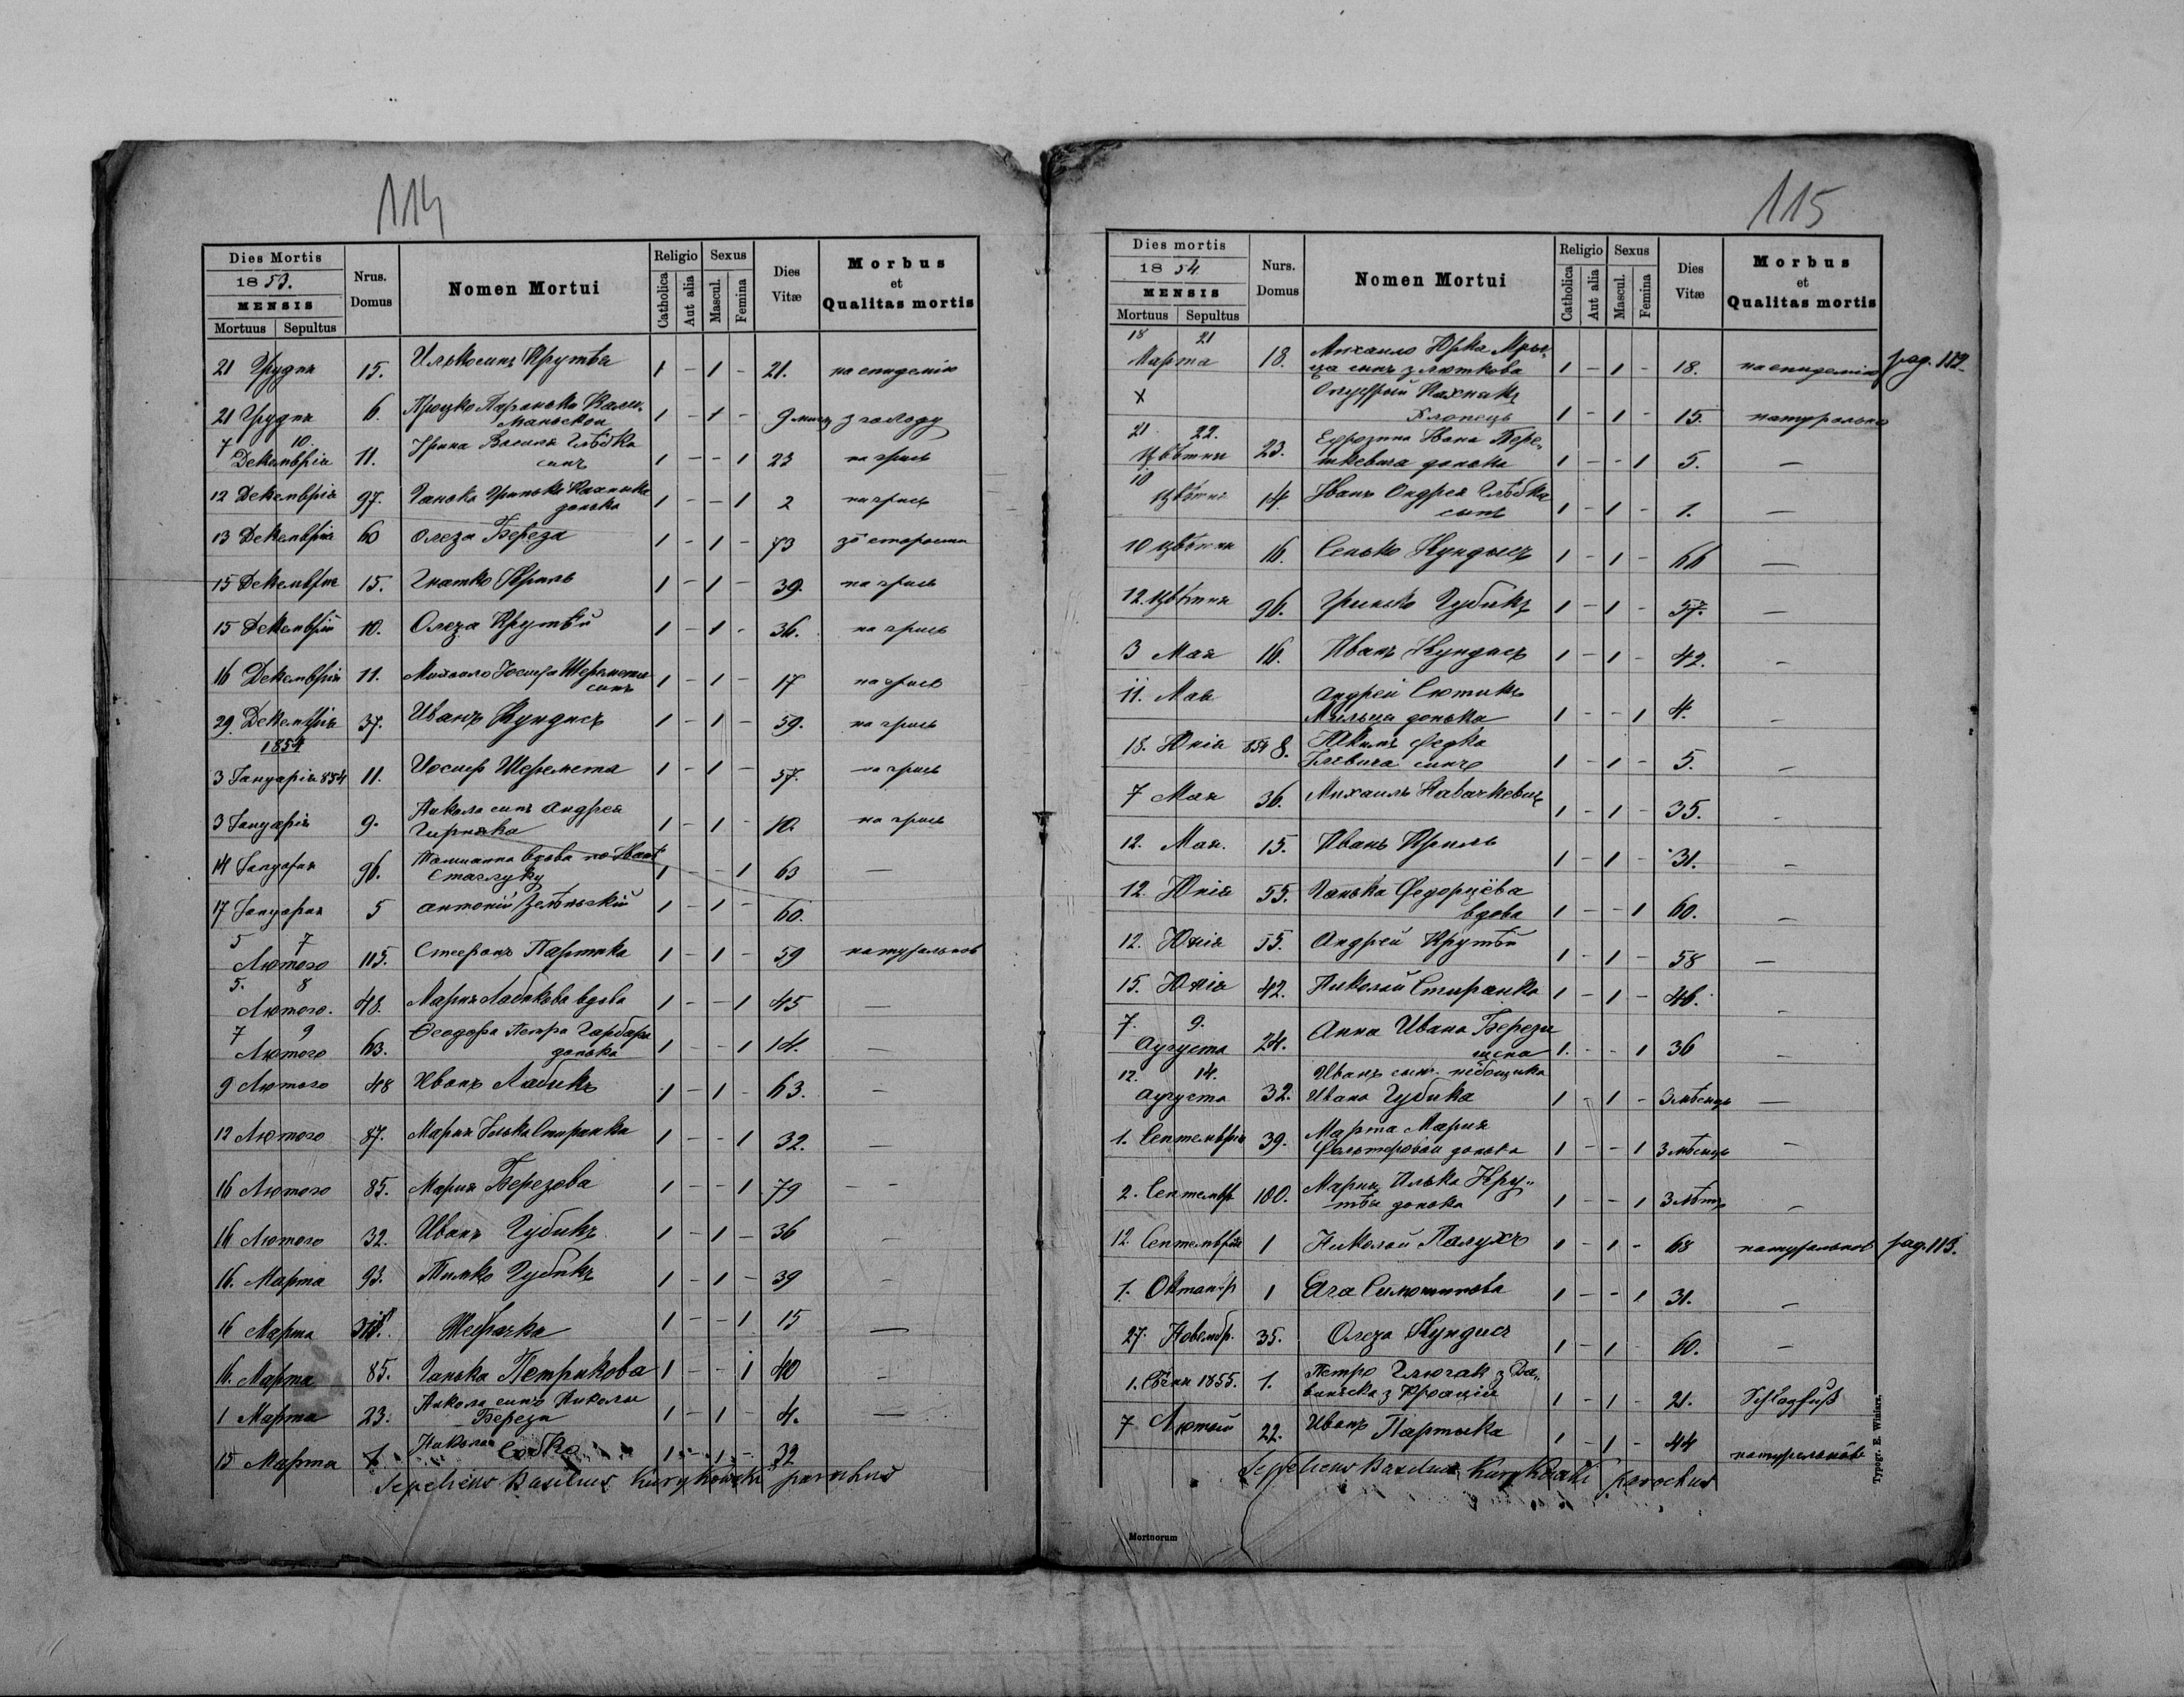 114
Dies Mortis
1853.
MENSIS
Mortuus Sepultus
Nrus. Domus
Nomen Mortui
Religio
Catholica
Aut alia
Sexus
Mascul.
Femina
Dies Vitæ
Morbus et Qualitas mortis
21 Грудня 15. Илько синъ Крутѣя 1 - 1 - 21. на епидемію
21 Грудня 6. Процко Параньки
9 з голоду
7 10.
Декемврія 11. Ирина Василя Глѣбка 1 - - 1 23 на грись
12 Декемврія 97. Ганька Гринька
донька 1 - - 1 2 на грись
13 Декемврія 60 Олеза Береза 1 - 1 - 73 зо старости
15 Декемврія 15. Гнатко Криль 1 - 1 - 39. на грись
15 Декемврій 10. Олеза Крутѣй 1 - 1 - 36. на грись
16 Декемврія 11. Михайло Іосифа Шеремети
синъ 1 - 1 - 17 на грись
29. Декемврія 37. Иванъ Кундисъ 1 - 1 - 59. на грись
1854
3 Януарія 854 11. Иосиф Шеремета 1 - 1 - 57. на грись
3 Януарія 9. Никола синъ Андрея
1 - 1 - 10. на грись
14 Януарія 96. вдова по
1 - - 1 63 —
17 Януарія 5 Антоній Зелѣньскій 1 - 1 - 60.
5 7
Лютого 115. Стефанъ Партика 1 - 1 - 59 натуральнов
5. 8
Лютого. 48. Мария Лабикова вдова 1 - - 1 45 —
7 9
Лютого 63. Феодора Петра Гарбара
донька 1 - - 1 14. —
9 Лютого 48 Иванъ Лабикъ 1 - 1 - 63. —
12 Лютого 87. Мария Илька Стиранка 1 - - 1 32. —
16 Лютого 85. Мария Березова 1 - - 1 79 - -
16 Лютого 32. Иванъ Губикъ 1 - 1 - 36 -
16. Марта 93. Тимко Губикъ 1 - 1 - 39 -
16 Марта Жебрачка 1 - - 1 15 —
16. Марта 85. Ганька Петрикова 1 - - 1 40 -
1 Марта 23. Никола синъ Николы
Берези 1 - 1 - 4. —
15 Марта 1. Никола 1 - 1 - 32
Sepeliens Basilius Kurykowski parochus
115
Dies mortis
1854
MENSIS
Mortuus Sepultus
Nurs. Domus
Nomen Mortui
Religio
Catholica
Aut alia
Sexus
Mascul.
Femina
Dies Vitæ
Morbus et Qualitas mortis
18 21
Марта 18. Михайло Юрка
синъ з Люткова 1 - 1 - 18. на епидемію pag. 112
X Онуфрый Пахнякъ
Хлопець 1 - 1 - 15. натурально
21. 22.
Цвѣтня 23. Ефрозина Ивана Пере-
ткевича донька 1 - - 1 5. —
10
Цвѣтня 14. Иванъ Андрея Глѣбка
сынъ 1 - 1 - 1. —
10 Цвѣтня 16. Сенько Кундысъ 1 - 1 - 66 —
12. Цвѣтня 96. Гринько Губикъ 1 - 1 - 57. —
3 Мая 16. Иванъ Кундисъ 1 - 1 - 42. -
11. Мая Андрей Сютикъ
донька 1 - - 1 4. -
18. Юнія 854 8. Якимъ Федка
синъ 1 - 1 - 5. -
7 Мая 36. Михаилъ Навачкевичъ 1 - 1 - 35. -
12. Мая. 15. Иванъ Криль 1 - 1 - 31. -
12. Юнія 55. Ганька Федорцёва
вдова 1 - - 1 60. -
12. Юнія 55. Андрей Крутѣй 1 - 1 - 58 —
15. Юнія 42. Николай Стиранка 1 - 1 - 46. -
7. 9.
Аугуста 24. Анна Ивана Березы
жена 1. - - 1 36 -
12. 14.
Аугуста 32. Иванъ сынъ небощика
Ивана Губика 1 - 1 - 3 мѣсяць —
1. Септемврія 39. Марта Мария
донька 1 - - 1 3 мѣсяць —
2. Септемвр 100. Мария Илька Кру-
тѣя донька 1 - - 1 3 лѣтъ -
12. Септемврія 1 Николай Палухъ 1 - 1 - 68 натуральнов pag. 113.
1. Октаобр 1 Ева Симошинова 1 - - 1 31. -
27. Новембр. 35. Олеза Кундисъ 1 - 1 - 60. -
1. Сѣчня 1855. 1. Петро
з Кроаціи 1 - 1 - 21.
7 Лютый 22. Иванъ Партыка 1 - 1 - 44 натуральнов
Sepeliens Basilius Kurykowski parochus
Mortuorum
Typogr. E. Winiarz.